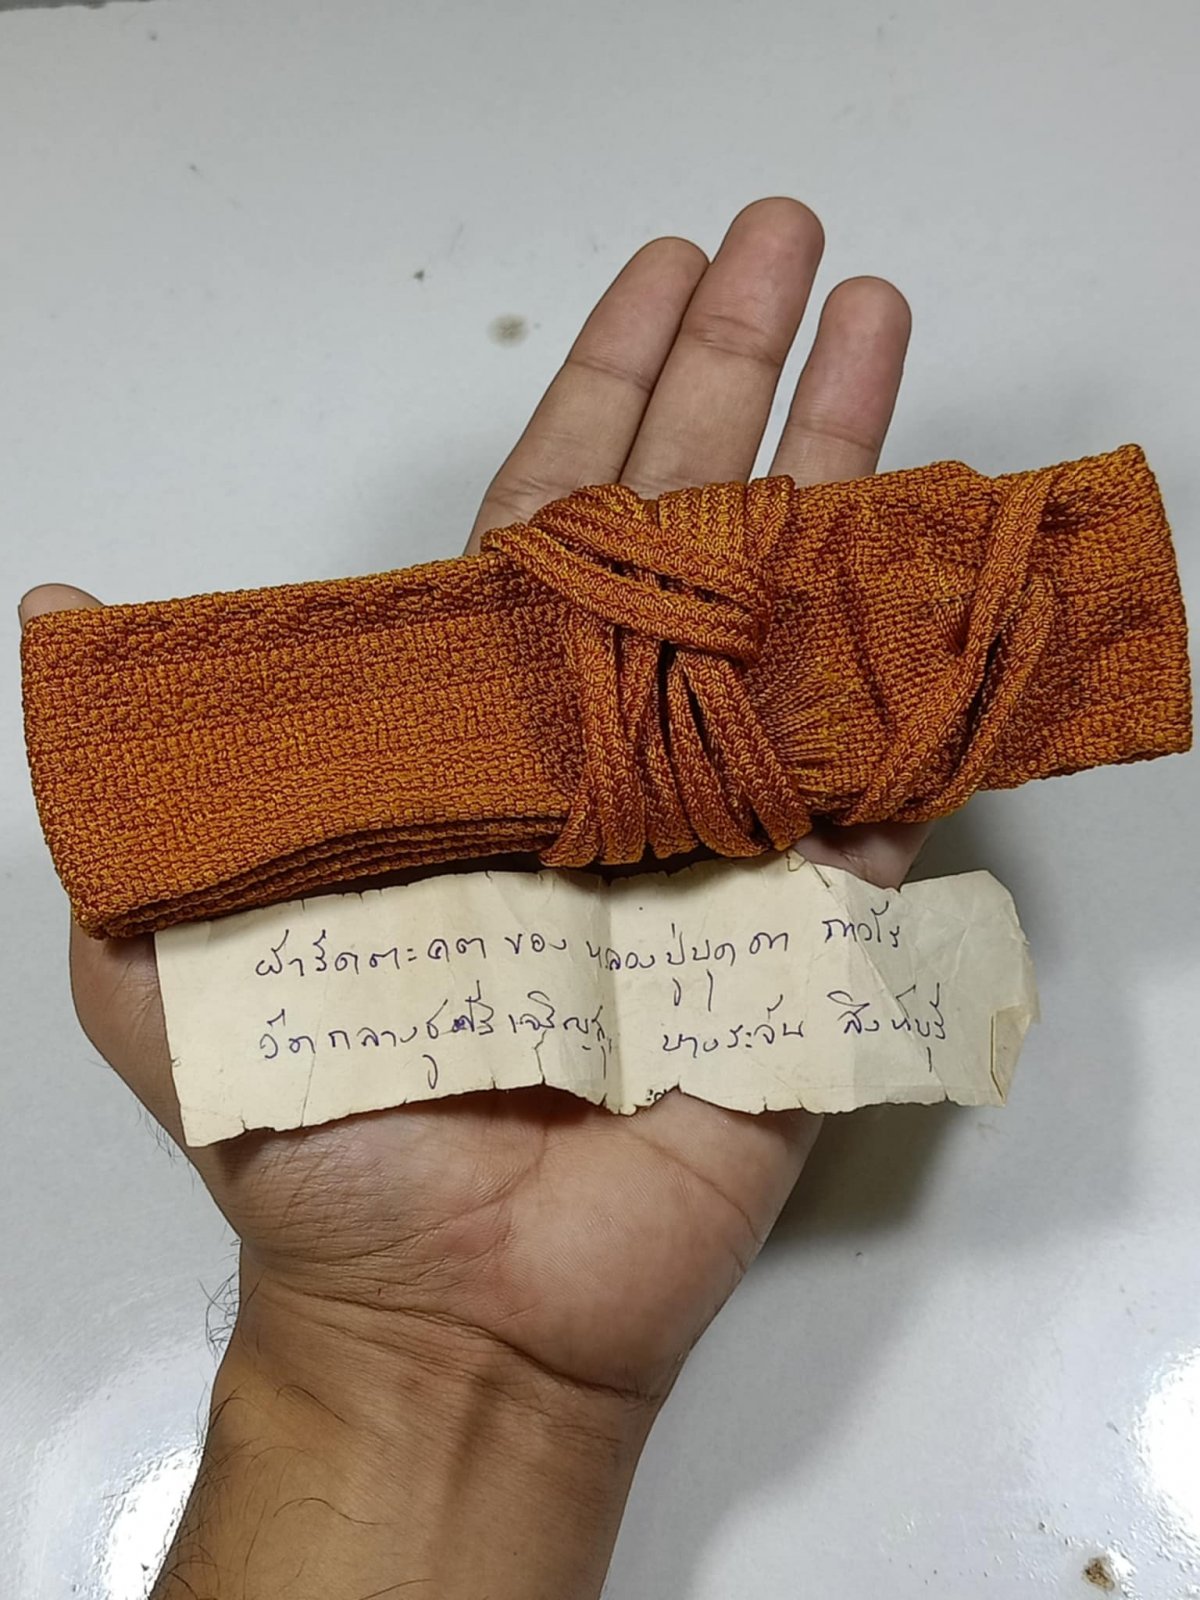 ผ้ารัดตะคต ของ หลวงปู่บุดดา ถาวโร
วัดกลางชูศรีเจริญสุข บางระจัน สิงห์บุรี